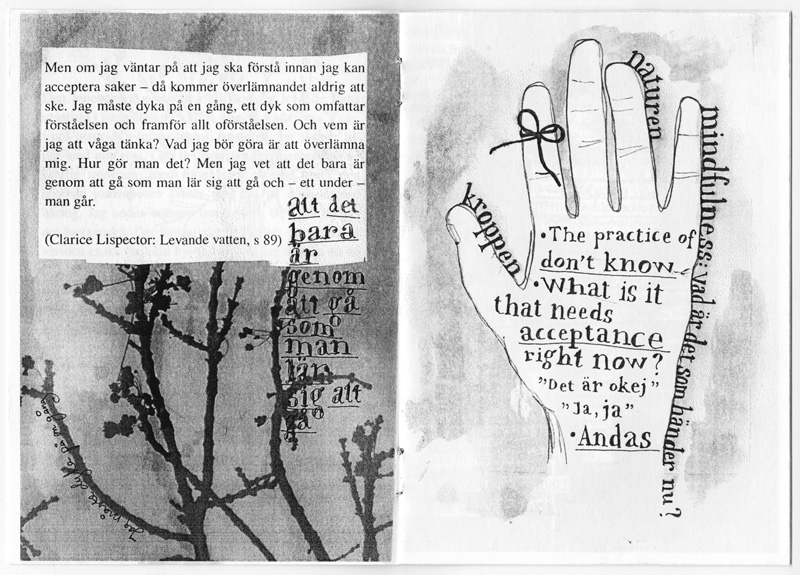 Men om jag väntar på att jag ska förstå innan jag kan
acceptera saker – då kommer överlämnandet aldrig att
ske. Jag måste dyka på en gång, ett dyk som omfattar
förståelsen och framför allt oförståelsen. Och vem är
jag att våga tänka? Vad jag bör göra är att överlämna
mig. Hur gör man det? Men jag vet att det bara är
genom att gå som man lär sig att gå och – ett under –
man går.
(Clarice Lispector: Levande vatten, s 89)
att det
bara
är
genom
att gå
som
man
lär
sig att
gå
Jag måste dyka på en gång
kroppen
naturen
mindfulness: vad är det som händer nu?
•The practice of
don't know
•What is it
that needs
acceptance
right now?
"Det är okej"
"Ja, ja"
•Andas